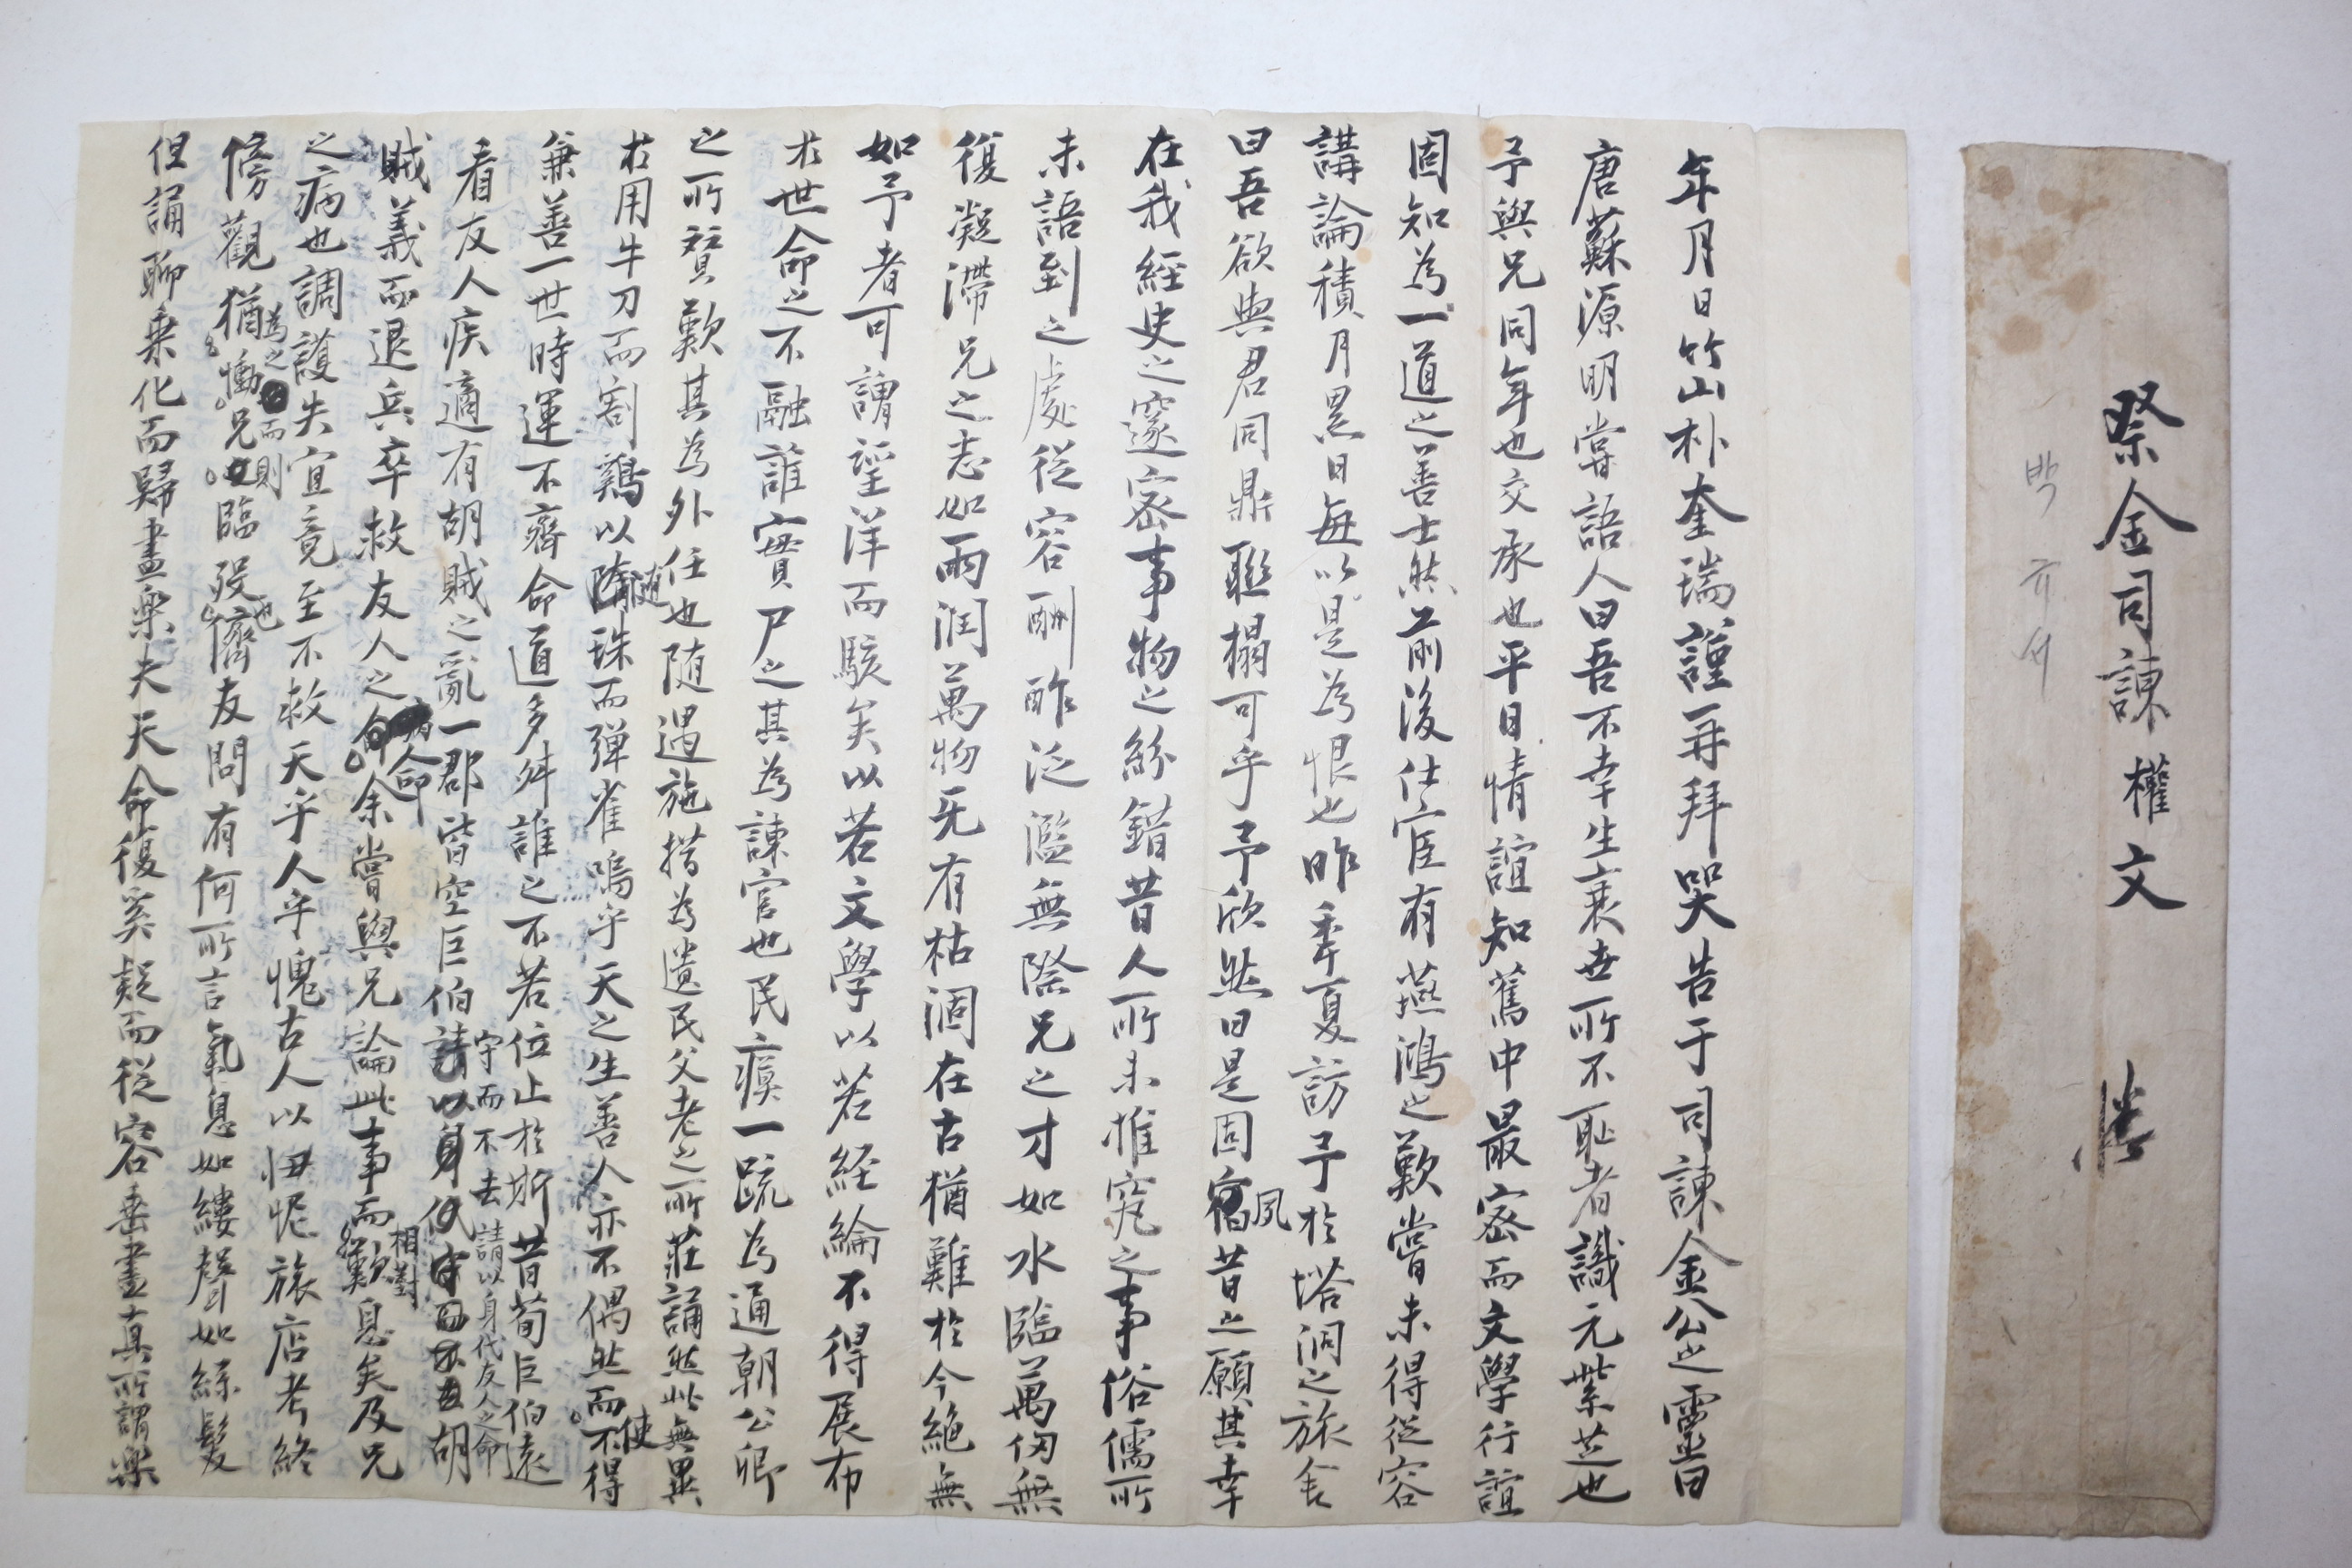 祭金司諫權文
박규서
年月日竹山朴奎瑞謹再拜哭告于司諫金公之靈曰
唐蘇源明嘗語人曰吾不幸生衰世所不恥者識元紫芝也
予與兄同年也交承也平日情誼知舊中最密而文學行誼
固知爲一道之善士然前後仕宦有燕鴻之歎嘗未得從容
講論積月累日每以是爲恨也昨季夏訪予於塔洞之旅舍
曰吾欲與君同鼎聯榻可乎予欣然曰是固夙昔之願其幸
在我經史之邃密事物之紛錯昔人所未推究之事俗儒所
未語到之處從容酬酢泛濫無際兄之才如水臨萬仞無
復凝滯兄之志如雨潤萬物旡有枯涸在古猶難於今絶無
如予者可謂望洋而駭矣以若文學以若經綸不得展布
於世命之不融誰實尸之其爲諫官也民瘼一疏爲通朝公卿
之所賛歎其爲外任也随遇施措爲遺民父老之所莊誦然此無異
於用牛刀而割鷄以隨珠而彈雀嗚乎天之生善人亦不偶然而使不得
兼善一世時運不齊命道多舛誰之不若位止於斯昔荀巨伯遠
看友人疾適有胡賊之亂一郡皆空巨伯守而不去請以身代友人之命胡
賊義而退兵卒救友人之病命余嘗與兄論此事而相對歎息矣及兄
之病也調護失宜竟至不救天乎人乎愧古人以忸怩旅店考終
傍觀猶爲之慟而兄則臨歿也儕友問有何所言氣息如縷聲如絲髮
但誦聊乗化而歸盡樂夫天命復奚疑而從容垂盡真所謂樂